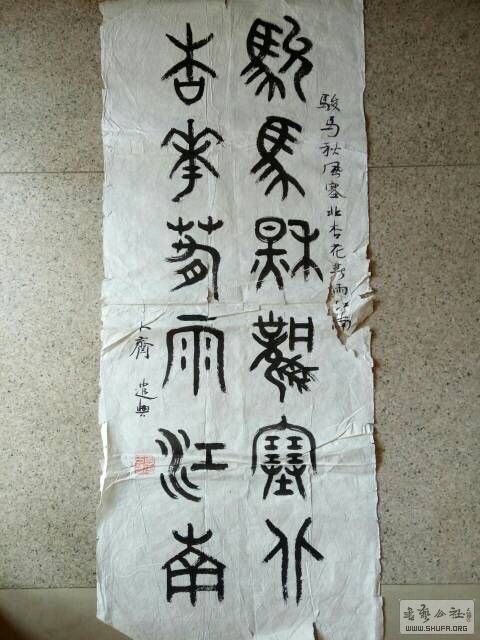 駿馬秋風塞北杏花春雨江南
駿馬秋風塞北
杏華春雨江南
卜齋
书艺公社
WWW.SHUFA.ORG